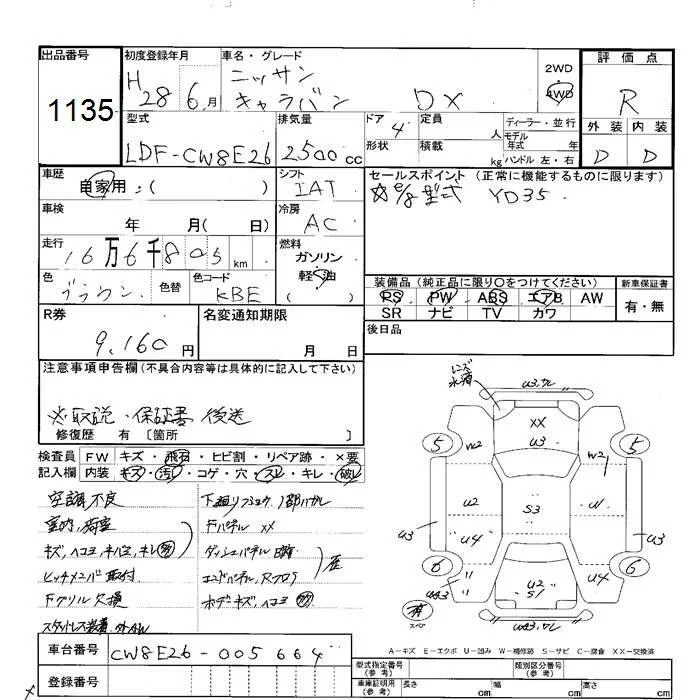 出品番号
1135
初度登録年月
H 28 6 月
車名・グレード
ニッサン
キャラバン DX
2WD
4WD
評価点
R
外装 内装
D D
型式
LDF-CW8E26
排気量
2500 cc
ドア 4
形状
定員 人
積載 kg
ディーラー・並行
モデル年式 年
ハンドル 左・右
車歴
自家用・( )
シフト
IAT
セールスポイント (正常に機能するものに限ります)
型式 YD35
車検
年 月( 日)
冷房
AC
走行
16万6千805 km
燃料
ガソリン
軽油
( )
色
ブラウン
色替
色コード
KBE
装備品(純正品に限り○をつけてください)
PS PW ABS エアB AW
SR ナビ TV カワ
新車保証書
有・無
後日品
R券
9,160 円
名変通知期限
月 日
注意事項申告欄(不具合内容等は具体的に記入して下さい)
※取説・保証書 後送
修復歴 有 〔箇所 〕
検査員記入欄
FW キズ・飛石・ヒビ割・リペア跡・×要
内装 キズ・汚・コゲ・穴・スレ・キレ・破レ
空調不良
室内、荷室
キズ、ヘコミ
ヒッチメンバ取付
Fグリル欠損
Fパネル XX
ダッシュパネル
エンドパネル、Rフロア
ボデーキズ、ヘコミ
U3.サレ
XX
U3
5
5
W2
W2
U2
S3
W
U3
U3
U4
U4
6
6
UA3
U2
S1
有
スペア
A-キズ E-エクボ U-凹み W-補修跡 S-サビ C-腐食 XX-交換済
車台番号
CW8E26-005664
登録番号
型式指定番号(参考)
類別区分番号(参考)
車庫証明用(参考)
長さ cm
幅 cm
高さ cm